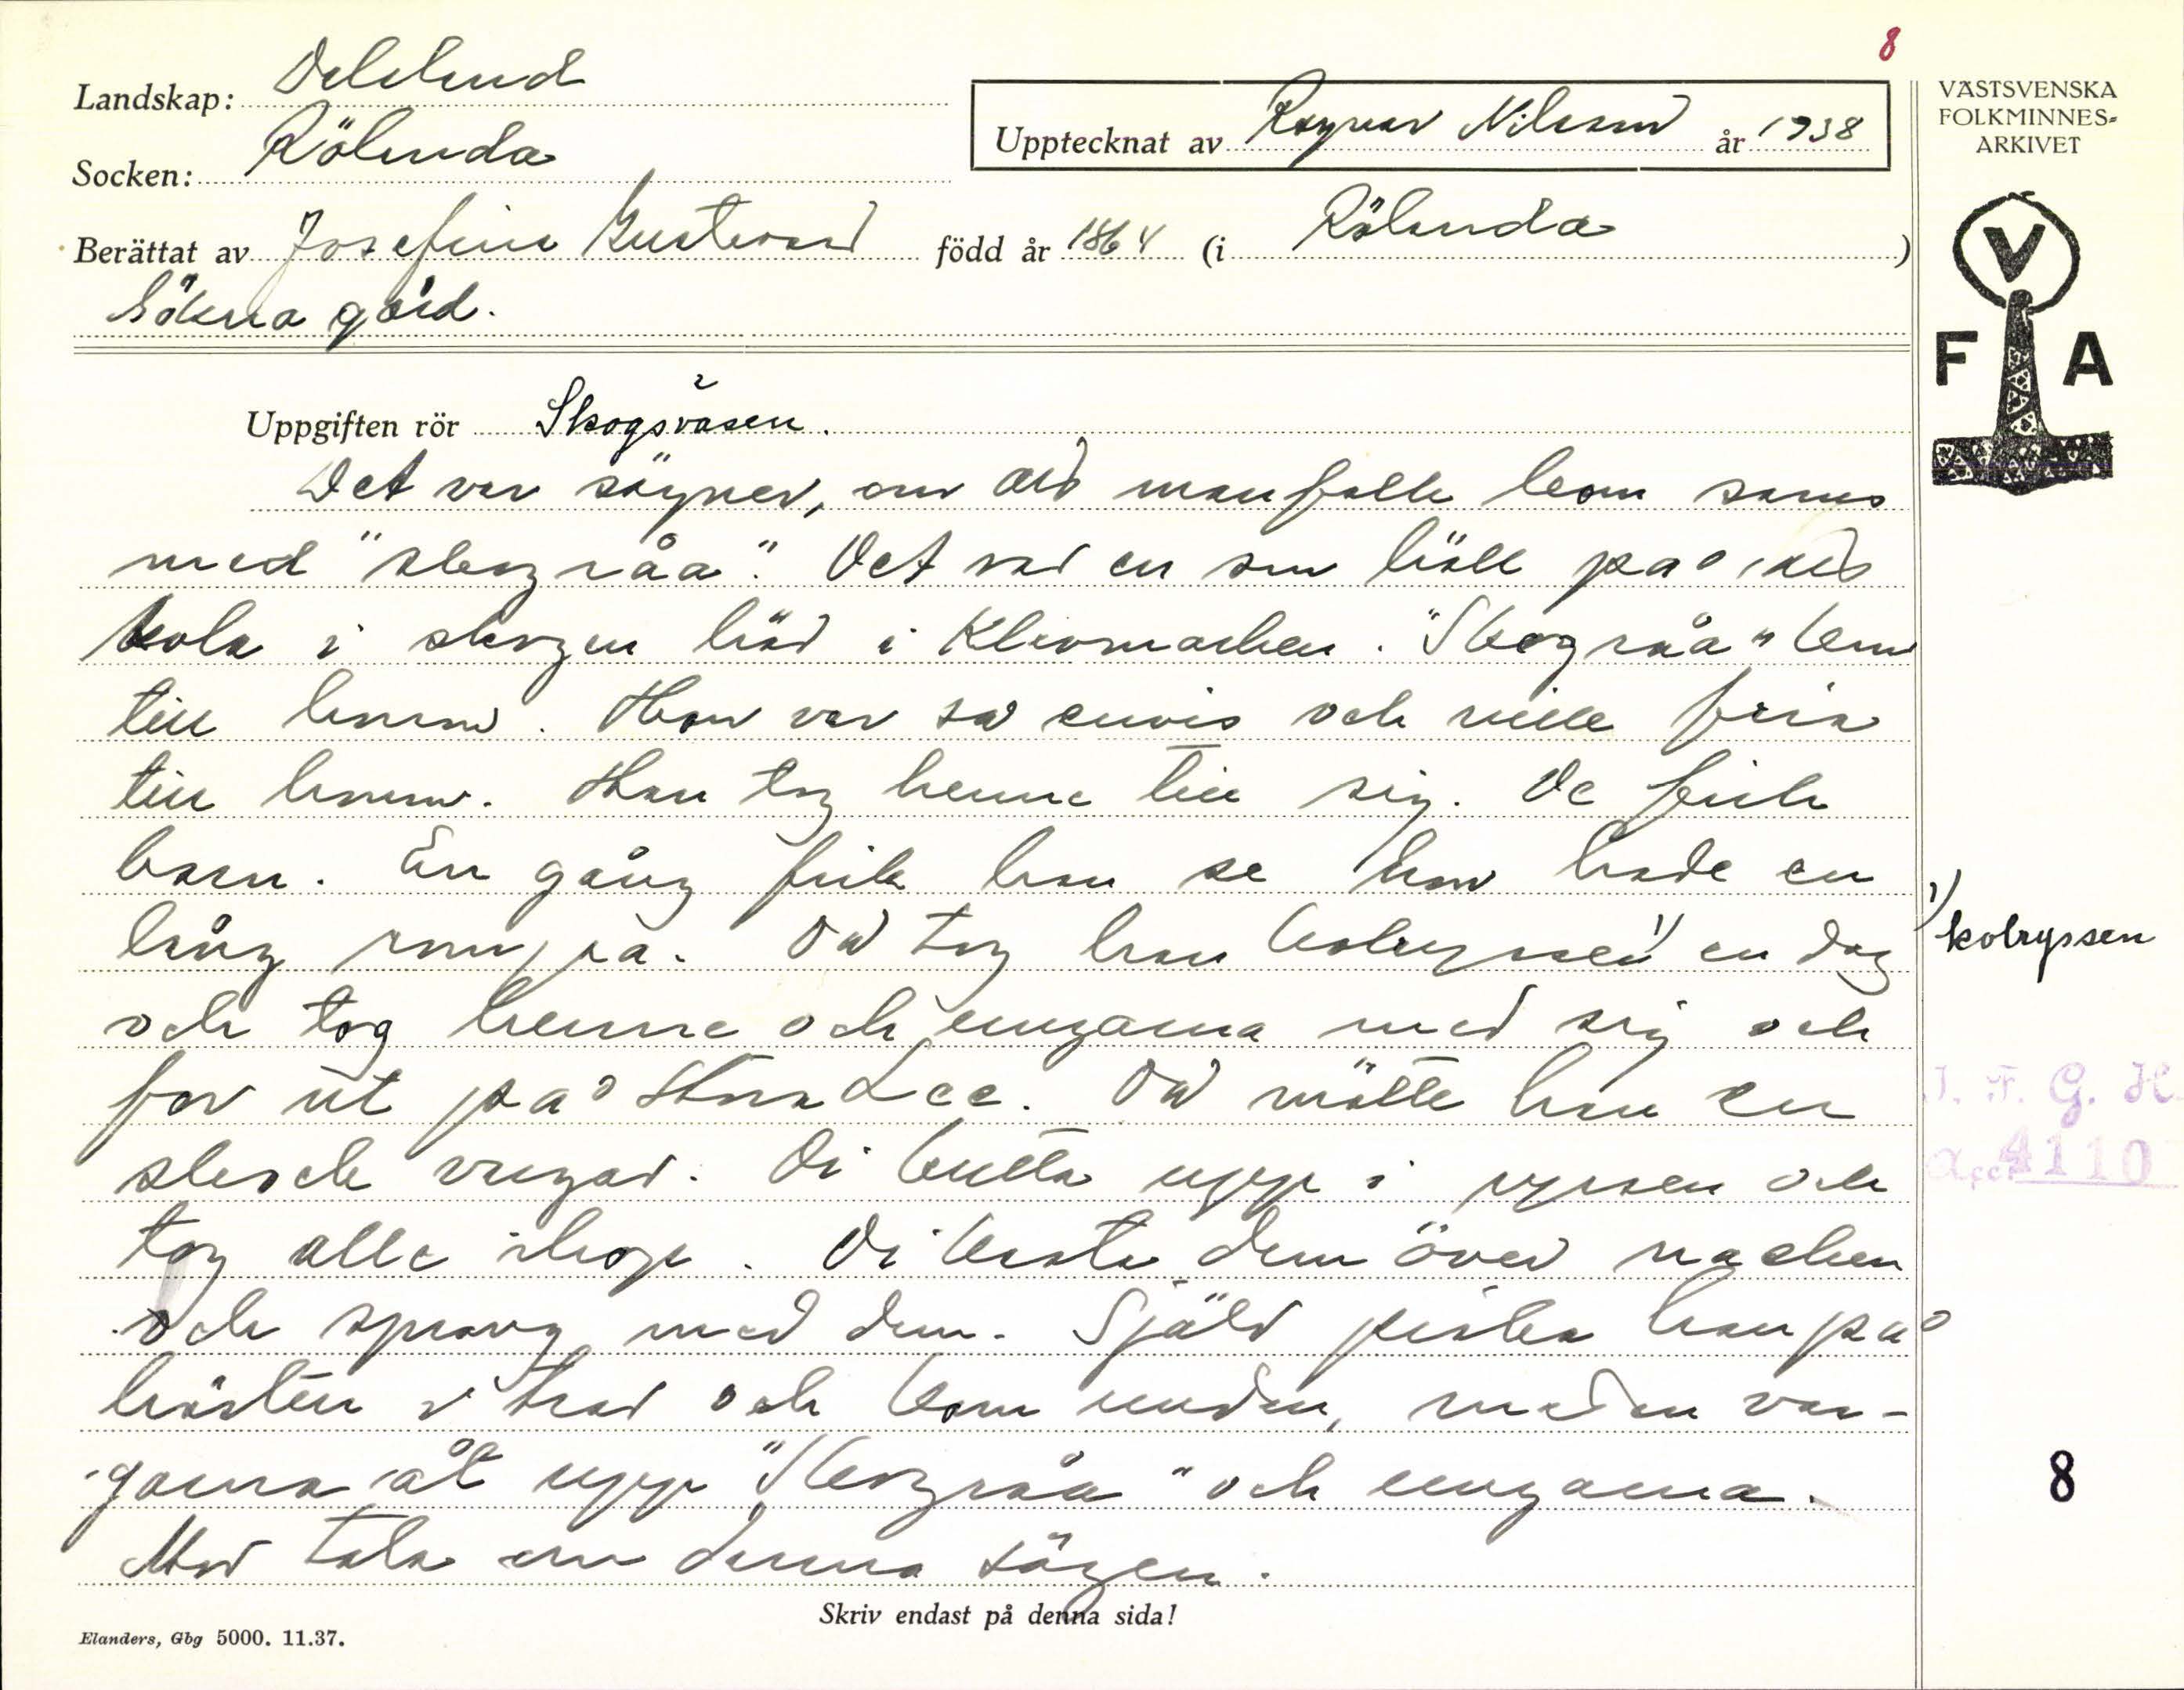 8
Landskap: Dalsland
Upptecknat av Ragnar Nilsson år 1938
VÄSTSVENSKA
FOLKMINNES-
ARKIVET
Socken: Rölanda
Berättat av Josefina Gustavsson född år 1864 (i Rölanda)
gård.
V
F A
Uppgiften rör Skogsväsen. 2
Det var sägner, om att manfolk kom sams
med "skogråa". Det var en som höll på att
kola i skogen här i Klevmarken. "Skogråa" kom
till honom. Hon var så envis och ville fria
till honom. Han tog henne till sig. De fick
barn. En gång fick han se hon hade en
lång rumpa. Då tog han kolryssen 1) en dag
1) kolryssen
och tog henne och ungarna med sig och
for ut på Stora Lee. Då mötte han en
skock vargar. Di hoppa upp i ryssen och
tog alle ihop. Di kasta dem över nacken
och sprang med dem. Själv piska han på
hästen å trav och kom undan, medan var-
garna åt upp "Skogråa" och ungarna.
Mor tala om denna sägen.
J. F. G. H.
acc. 4110
8
Skriv endast på denna sida!
Elanders, Gbg 5000. 11.37.